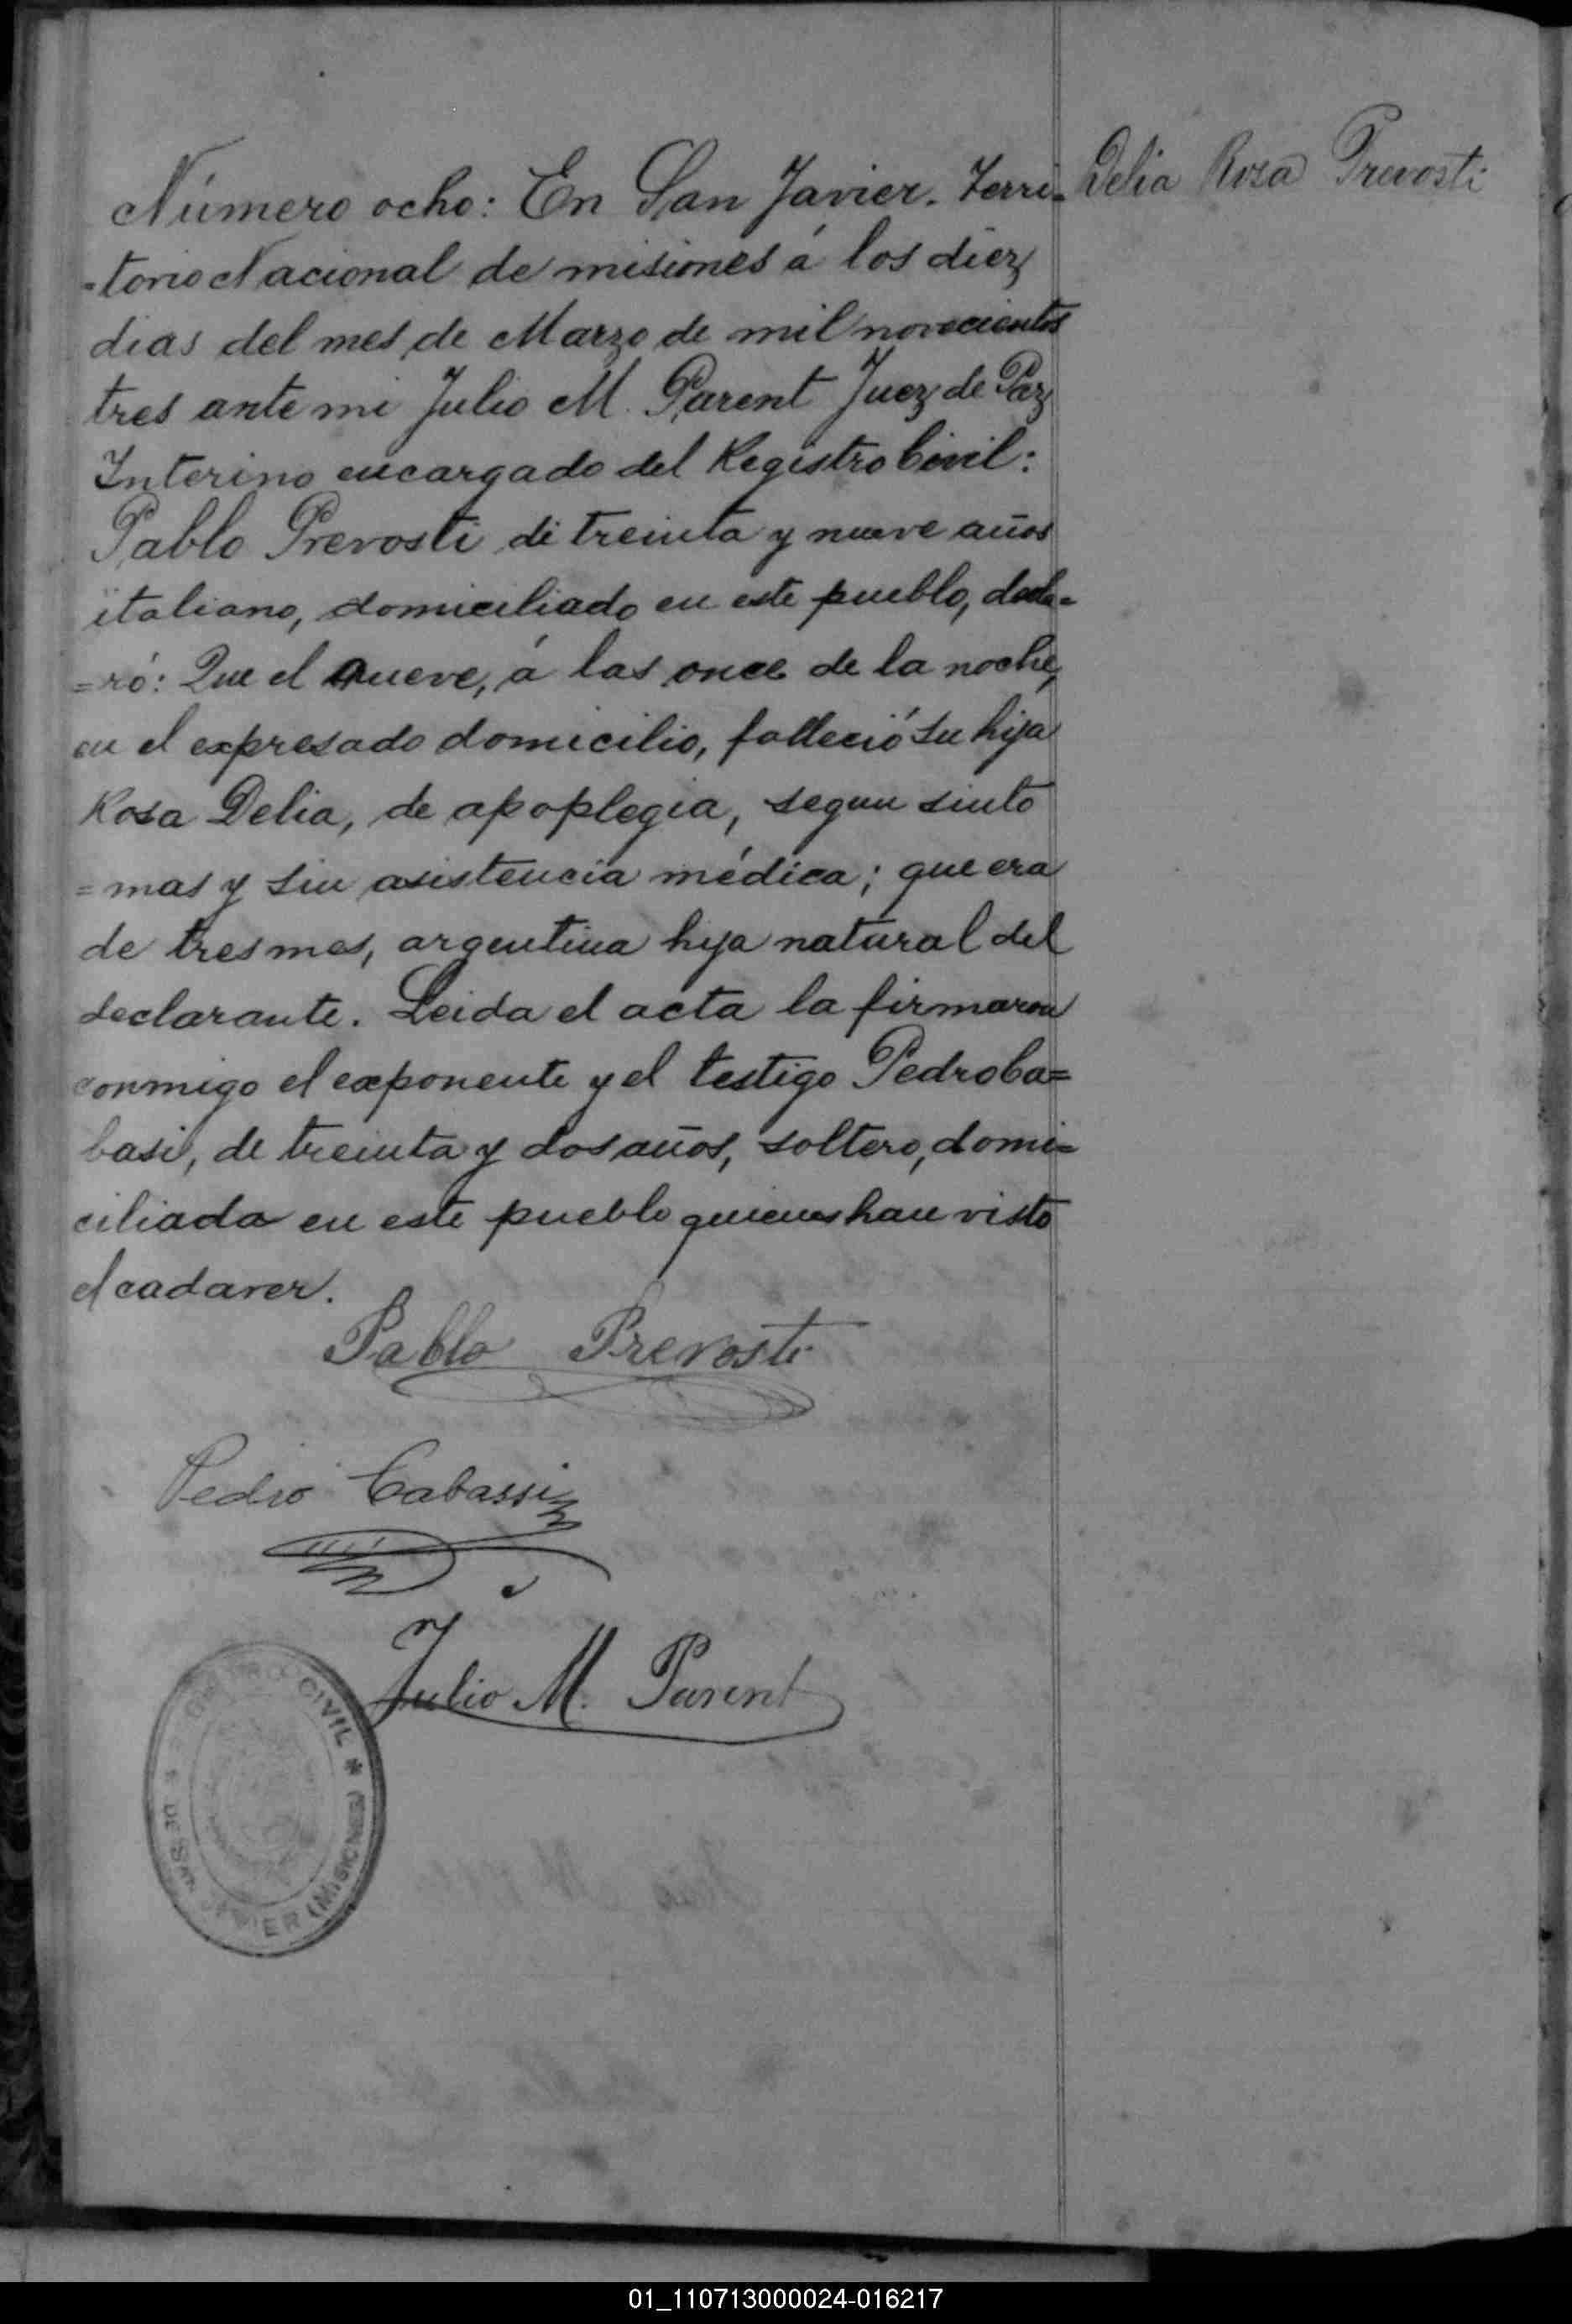 Número ocho: En San Javier. Terri- Delia Rosa Prevosti
-torio Nacional de misiones á los diez
dias del mes de Marzo de mil novecientos
tres ante mi Julio M. Parent Juez de Paz
Interino encargado del Registro Civil:
Pablo Prevosti de treinta y nueve años
italiano, domiciliado en este pueblo, decla=
=ró: Que el nueve, á las once de la noche,
en el expresado domicilio, falleció su hija
Rosa Delia, de apoplegia, segun sinto
=mas y sin asistencia médica; que era
de tres mes, argentina hija natural del
declarante. Leida el acta la firmaron
conmigo el exponente y el testigo Pedro Ca=
basi, de treinta y dos años, soltero, domi=
ciliada en este pueblo quienes han visto
el cadaver.
Pablo Prevosti
Pedro Cabassi
Julio M. Parent
REGISTRO CIVIL * DE SAN JAVIER (MISIONES) *
01_110713000024-016217